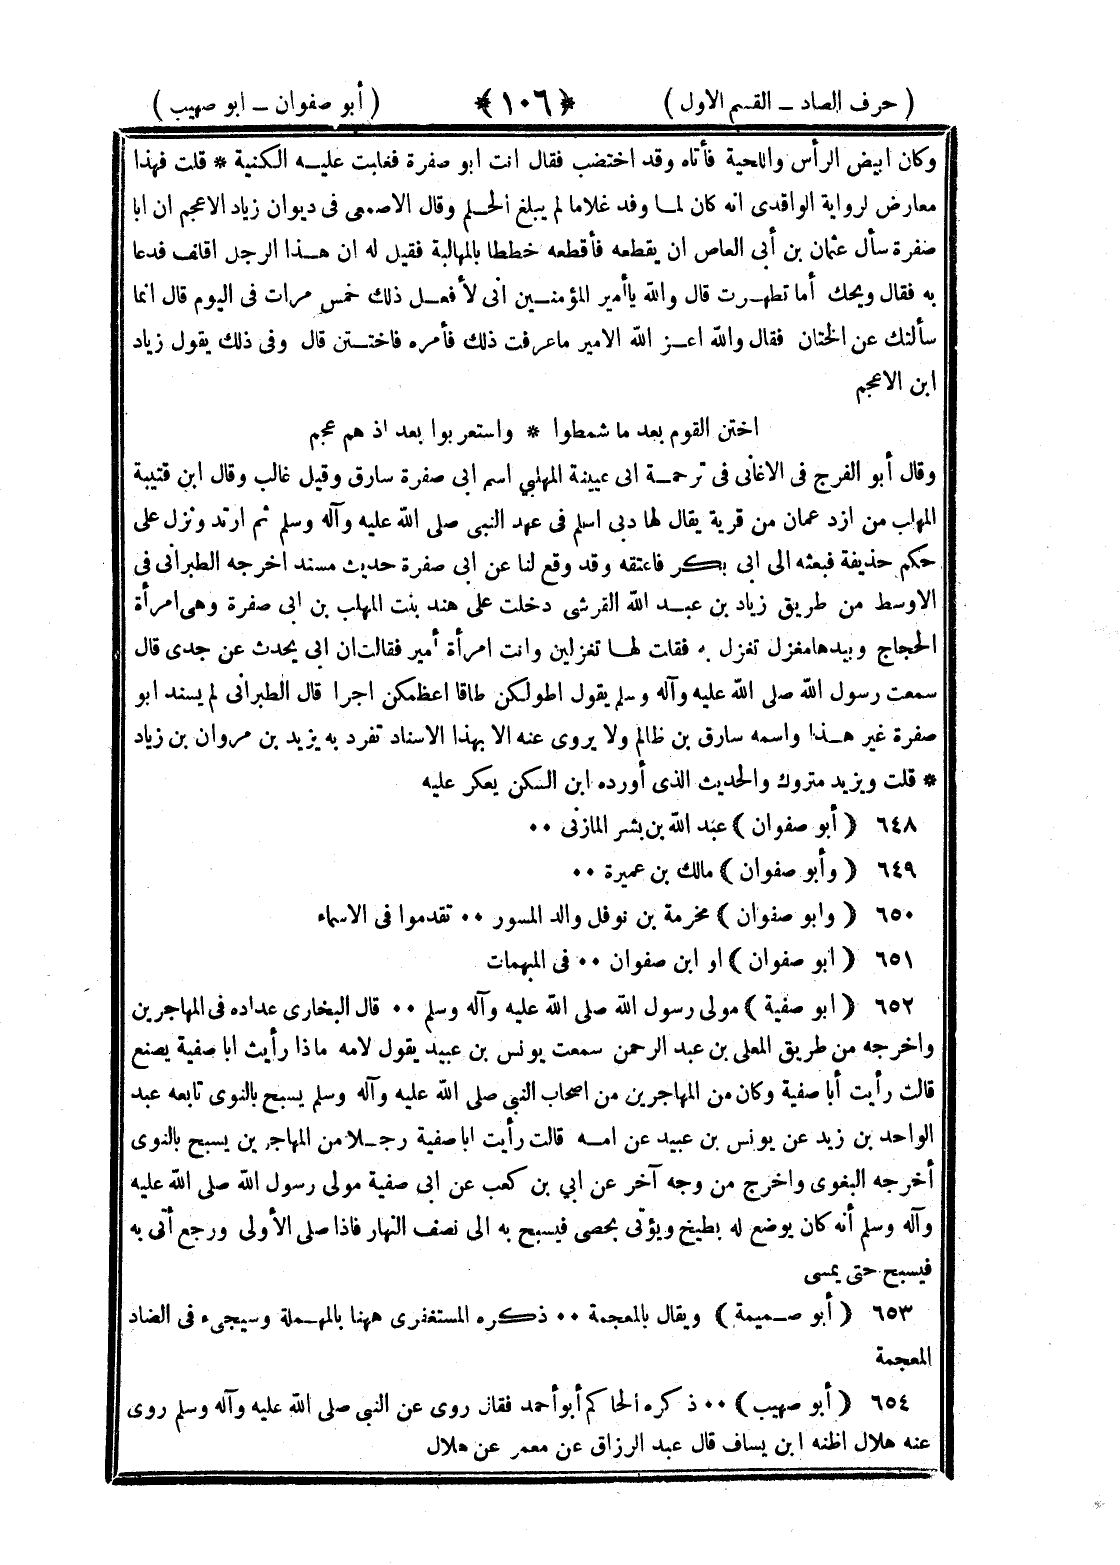 ( حرف الصاد ــ القسم الاول ) ﴿ ١٠٦ ﴾ ( أبو صفوان ــ ابو صهيب )
وكان ابيض الرأس واللحية فأتاه وقد اختضب فقال انت ابو صفرة فغلبت عليه الكنية * قلت فهذا
معارض لرواية الواقدى انه كان لما وفد غلاما لم يبلغ الحلم وقال الاصمعى فى ديوان زياد الاعجم ان ابا
صفرة سأل عثمان بن أبى العاص ان يقطعه فأقطعه خططا بالمهالبة فقيل له ان هذا الرجل اقلف فدعا
به فقال ويحك أما تطهرت قال والله ياأمير المؤمنين انى لأفعل ذلك خمس مرات فى اليوم قال انما
سألتك عن الختان فقال والله اعز الله الامير ماعرفت ذلك فأمره فاختتن قال وفى ذلك يقول زياد
ابن الاعجم
اختن القوم بعد ما شمطوا * واستعربوا بعد اذ هم عجم
وقال أبو الفرج فى الاغانى فى ترجمة ابى عيينة المهلبي اسم ابى صفرة سارق وقيل غالب وقال ابن قتيبة
المهلب من ازد عمان من قرية يقال لها دبى اسلم فى عهد النبى صلى الله عليه وآله وسلم ثم ارتد ونزل على
حكم حذيفة فبعثه الى ابى بكر فاعتقه وقد وقع لنا عن ابى صفرة حديث مسند اخرجه الطبرانى فى
الاوسط من طريق زياد بن عبد الله القرشى دخلت على هند بنت المهلب بن ابى صفرة وهى امرأة
الحجاج وبيدها مغزل تغزل به فقلت لها تغزلين وانت امرأة أمير فقالت ان ابى يحدث عن جدى قال
سمعت رسول الله صلى الله عليه وآله وسلم يقول اطولكن طاقا اعظمكن اجرا قال الطبرانى لم يسند ابو
صفرة غير هذا واسمه سارق بن ظالم ولا يروى عنه الا بهذا الاسناد تفرد به يزيد بن مروان بن زياد
* قلت ويزيد متروك والحديث الذى أورده ابن السكن يعكر عليه
٦٤٨ ( أبو صفوان ) عبد الله بن بشر المازنى ٠٠
٦٤٩ ( وأبو صفوان ) مالك بن عميرة ٠٠
٦٥٠ ( وابو صفوان ) مخرمة بن نوفل والد المسور ٠٠ تقدموا فى الاسماء
٦٥١ ( ابو صفوان ) او ابن صفوان ٠٠ فى المبهمات
٦٥٢ ( ابو صفية ) مولى رسول الله صلى الله عليه وآله وسلم ٠٠ قال البخارى عداده فى المهاجرين
واخرجه من طريق المعلى بن عبد الرحمن سمعت يونس بن عبيد يقول لامه ماذا رأيت ابا صفية يصنع
قالت رأيت أبا صفية وكان من المهاجرين من اصحاب النبي صلى الله عليه وآله وسلم يسبح بالنوى تابعه عبد
الواحد بن زيد عن يونس بن عبيد عن امه قالت رأيت ابا صفية رجلا من المهاجرين يسبح بالنوى
أخرجه البغوى واخرج من وجه آخر عن ابي بن كعب عن ابى صفية مولى رسول الله صلى الله عليه
وآله وسلم أنه كان يوضع له بطيخ ويؤتى بحصى فيسبح به الى نصف النهار فاذا صلى الأولى ورجع أتى به
فيسبح حتى يمسى
٦٥٣ ( أبو صميمة ) ويقال بالمعجمة ٠٠ ذكره المستغفرى ههنا بالمهملة وسيجىء فى الضاد
المعجمة
٦٥٤ ( أبو صهيب ) ٠٠ ذكره الحاكم أبو أحمد فقال روى عن النبي صلى الله عليه وآله وسلم روى
عنه هلال اظنه ابن يساف قال عبد الرزاق عن معمر عن هلال